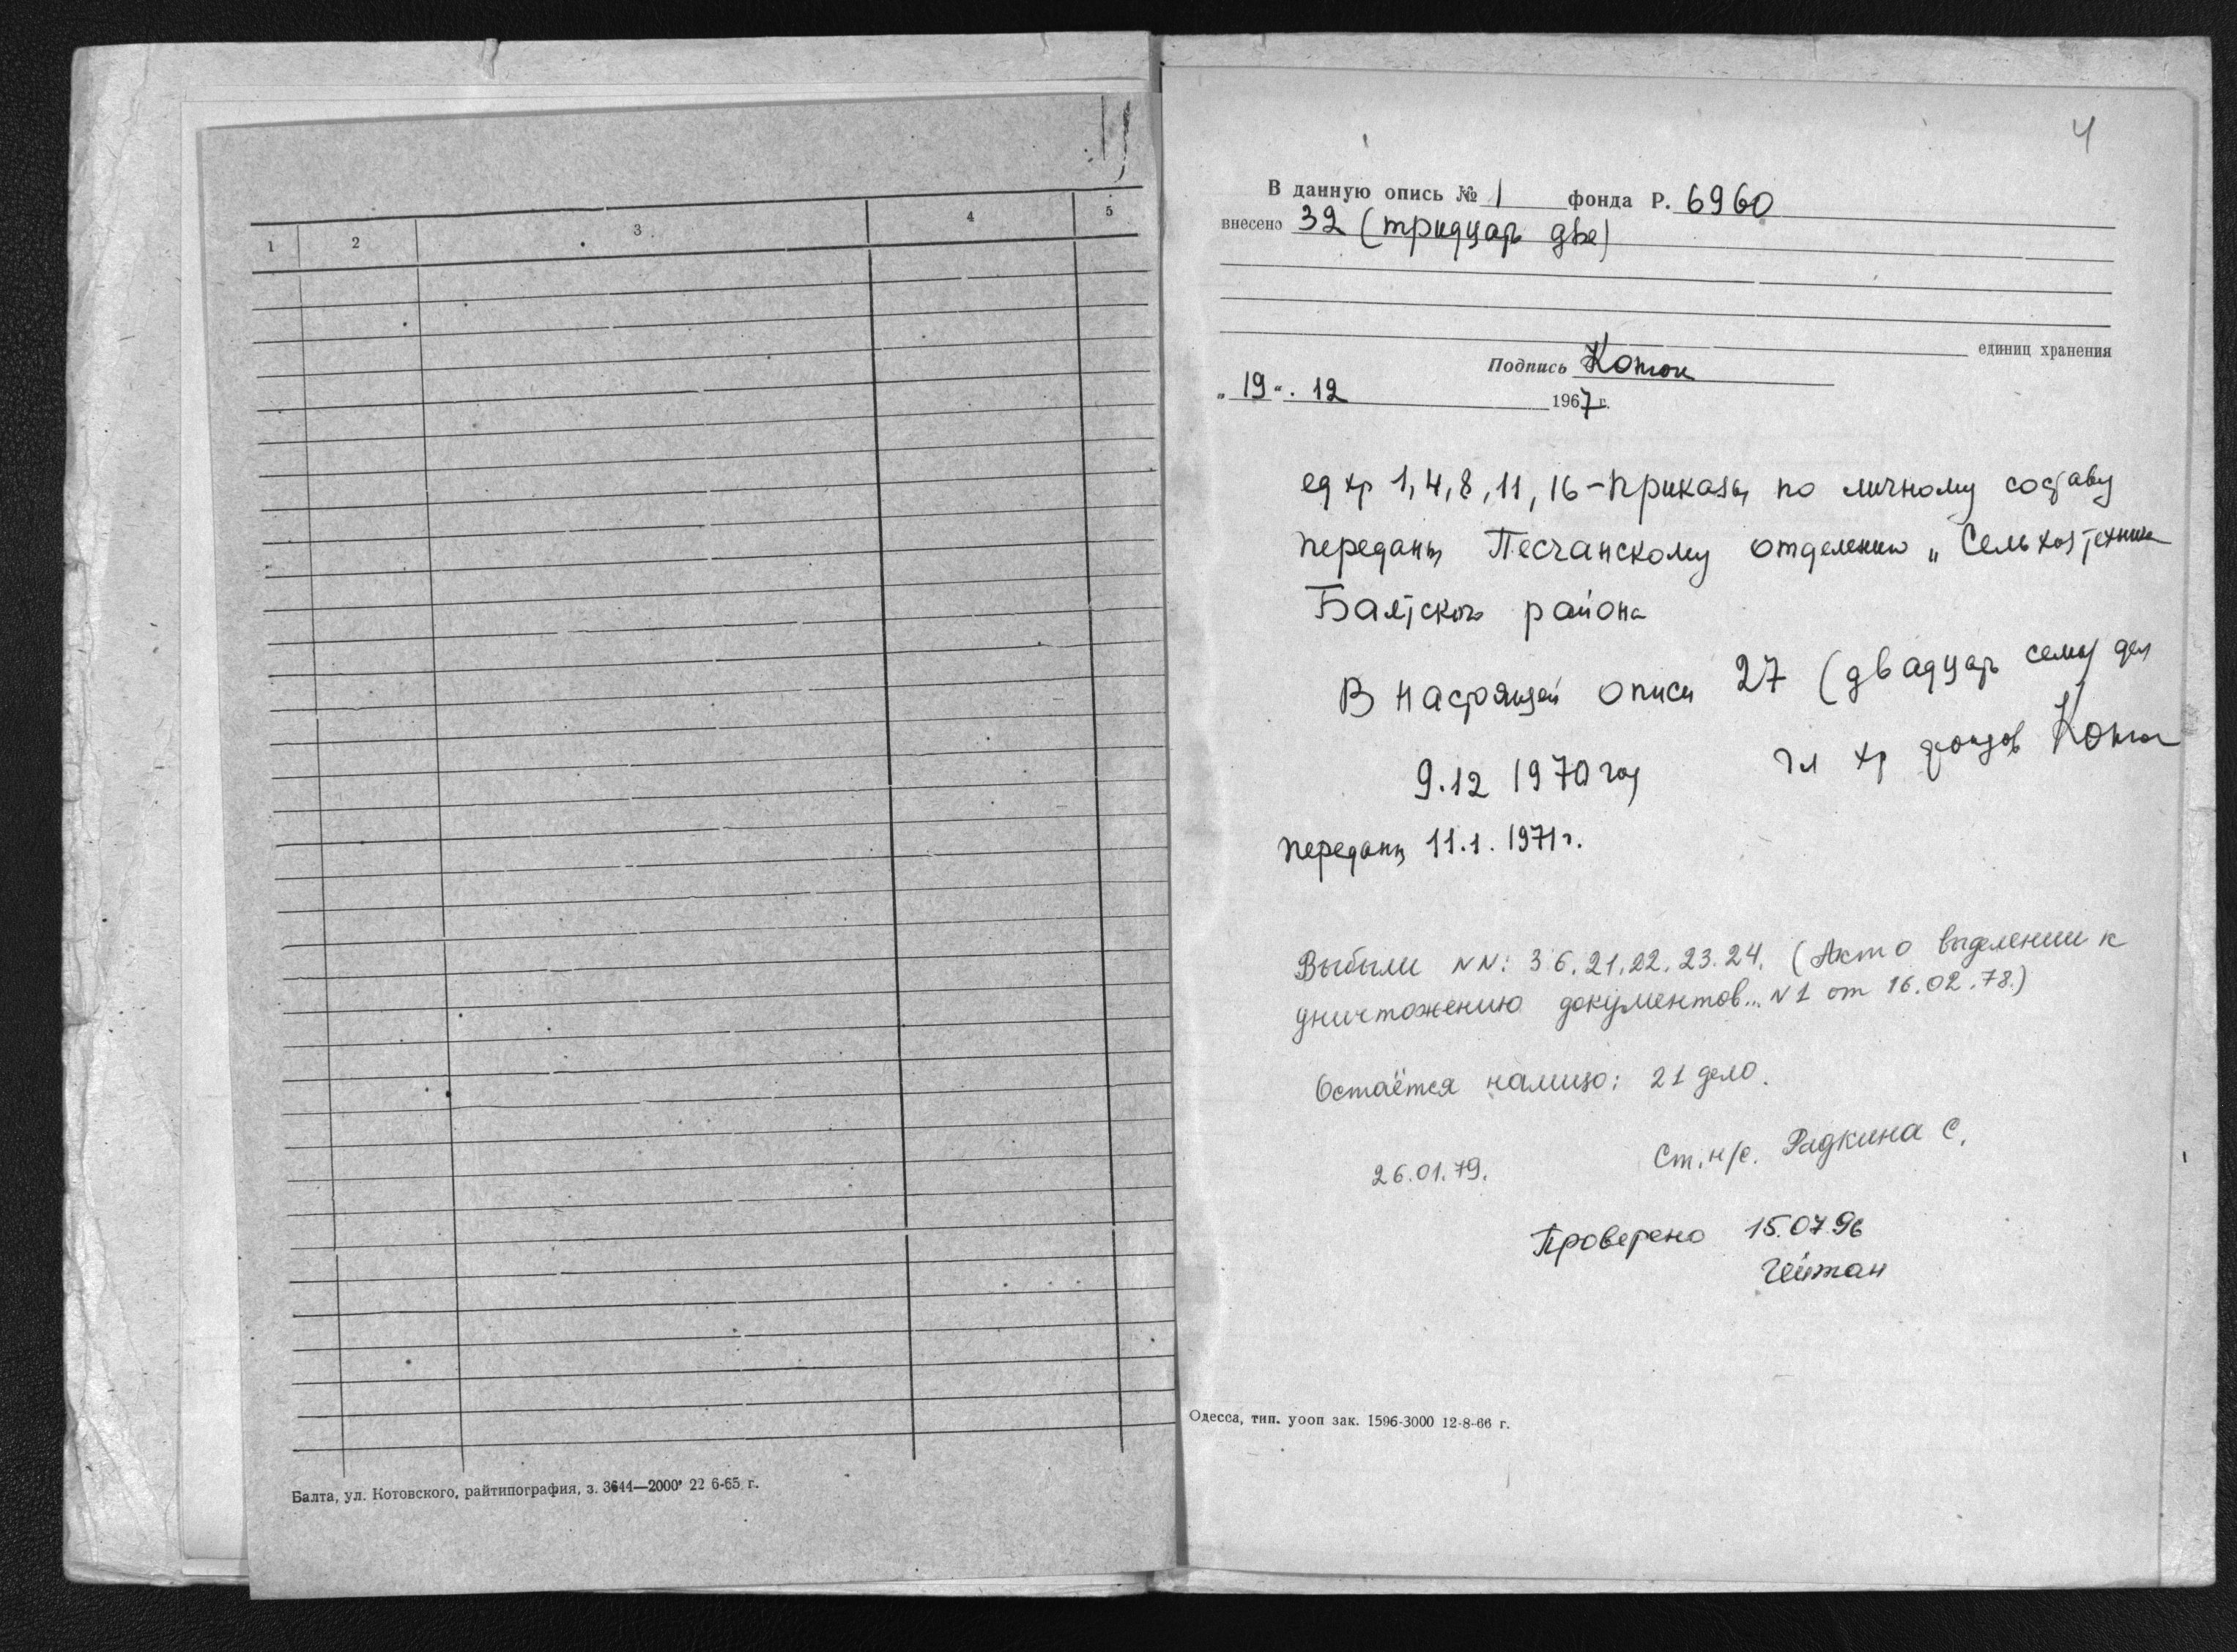 1 2 3 4 5
Балта, ул. Котовского, райтипография, з. 3644—2000 22 6-65 г.
4
В данную опись № 1 фонда Р. 6960
внесено 32 (тридцать две)
единиц хранения
Подпись
„19“. 12 1967 г.
ед хр 1, 4, 8, 11, 16 – приказы по личному составу
переданы Песчанскому отделению „Сельхозтехника
Балтского района
В настоящей описи 27 (двадцать семь) дел
9.12 1970 год гл хр фондов
переданы 11.1.1971 г.
Выбыли NN: 3 6. 21. 22. 23. 24. (Акт о выделении к
уничтожению документов... N 1 от 16.02.78.)
Остаётся налицо: 21 дело.
26.01.79. Ст. н/с. Радкина С.
Проверено 15.07.96
Одесса, тип. уооп зак. 1596-3000 12-8-66 г.